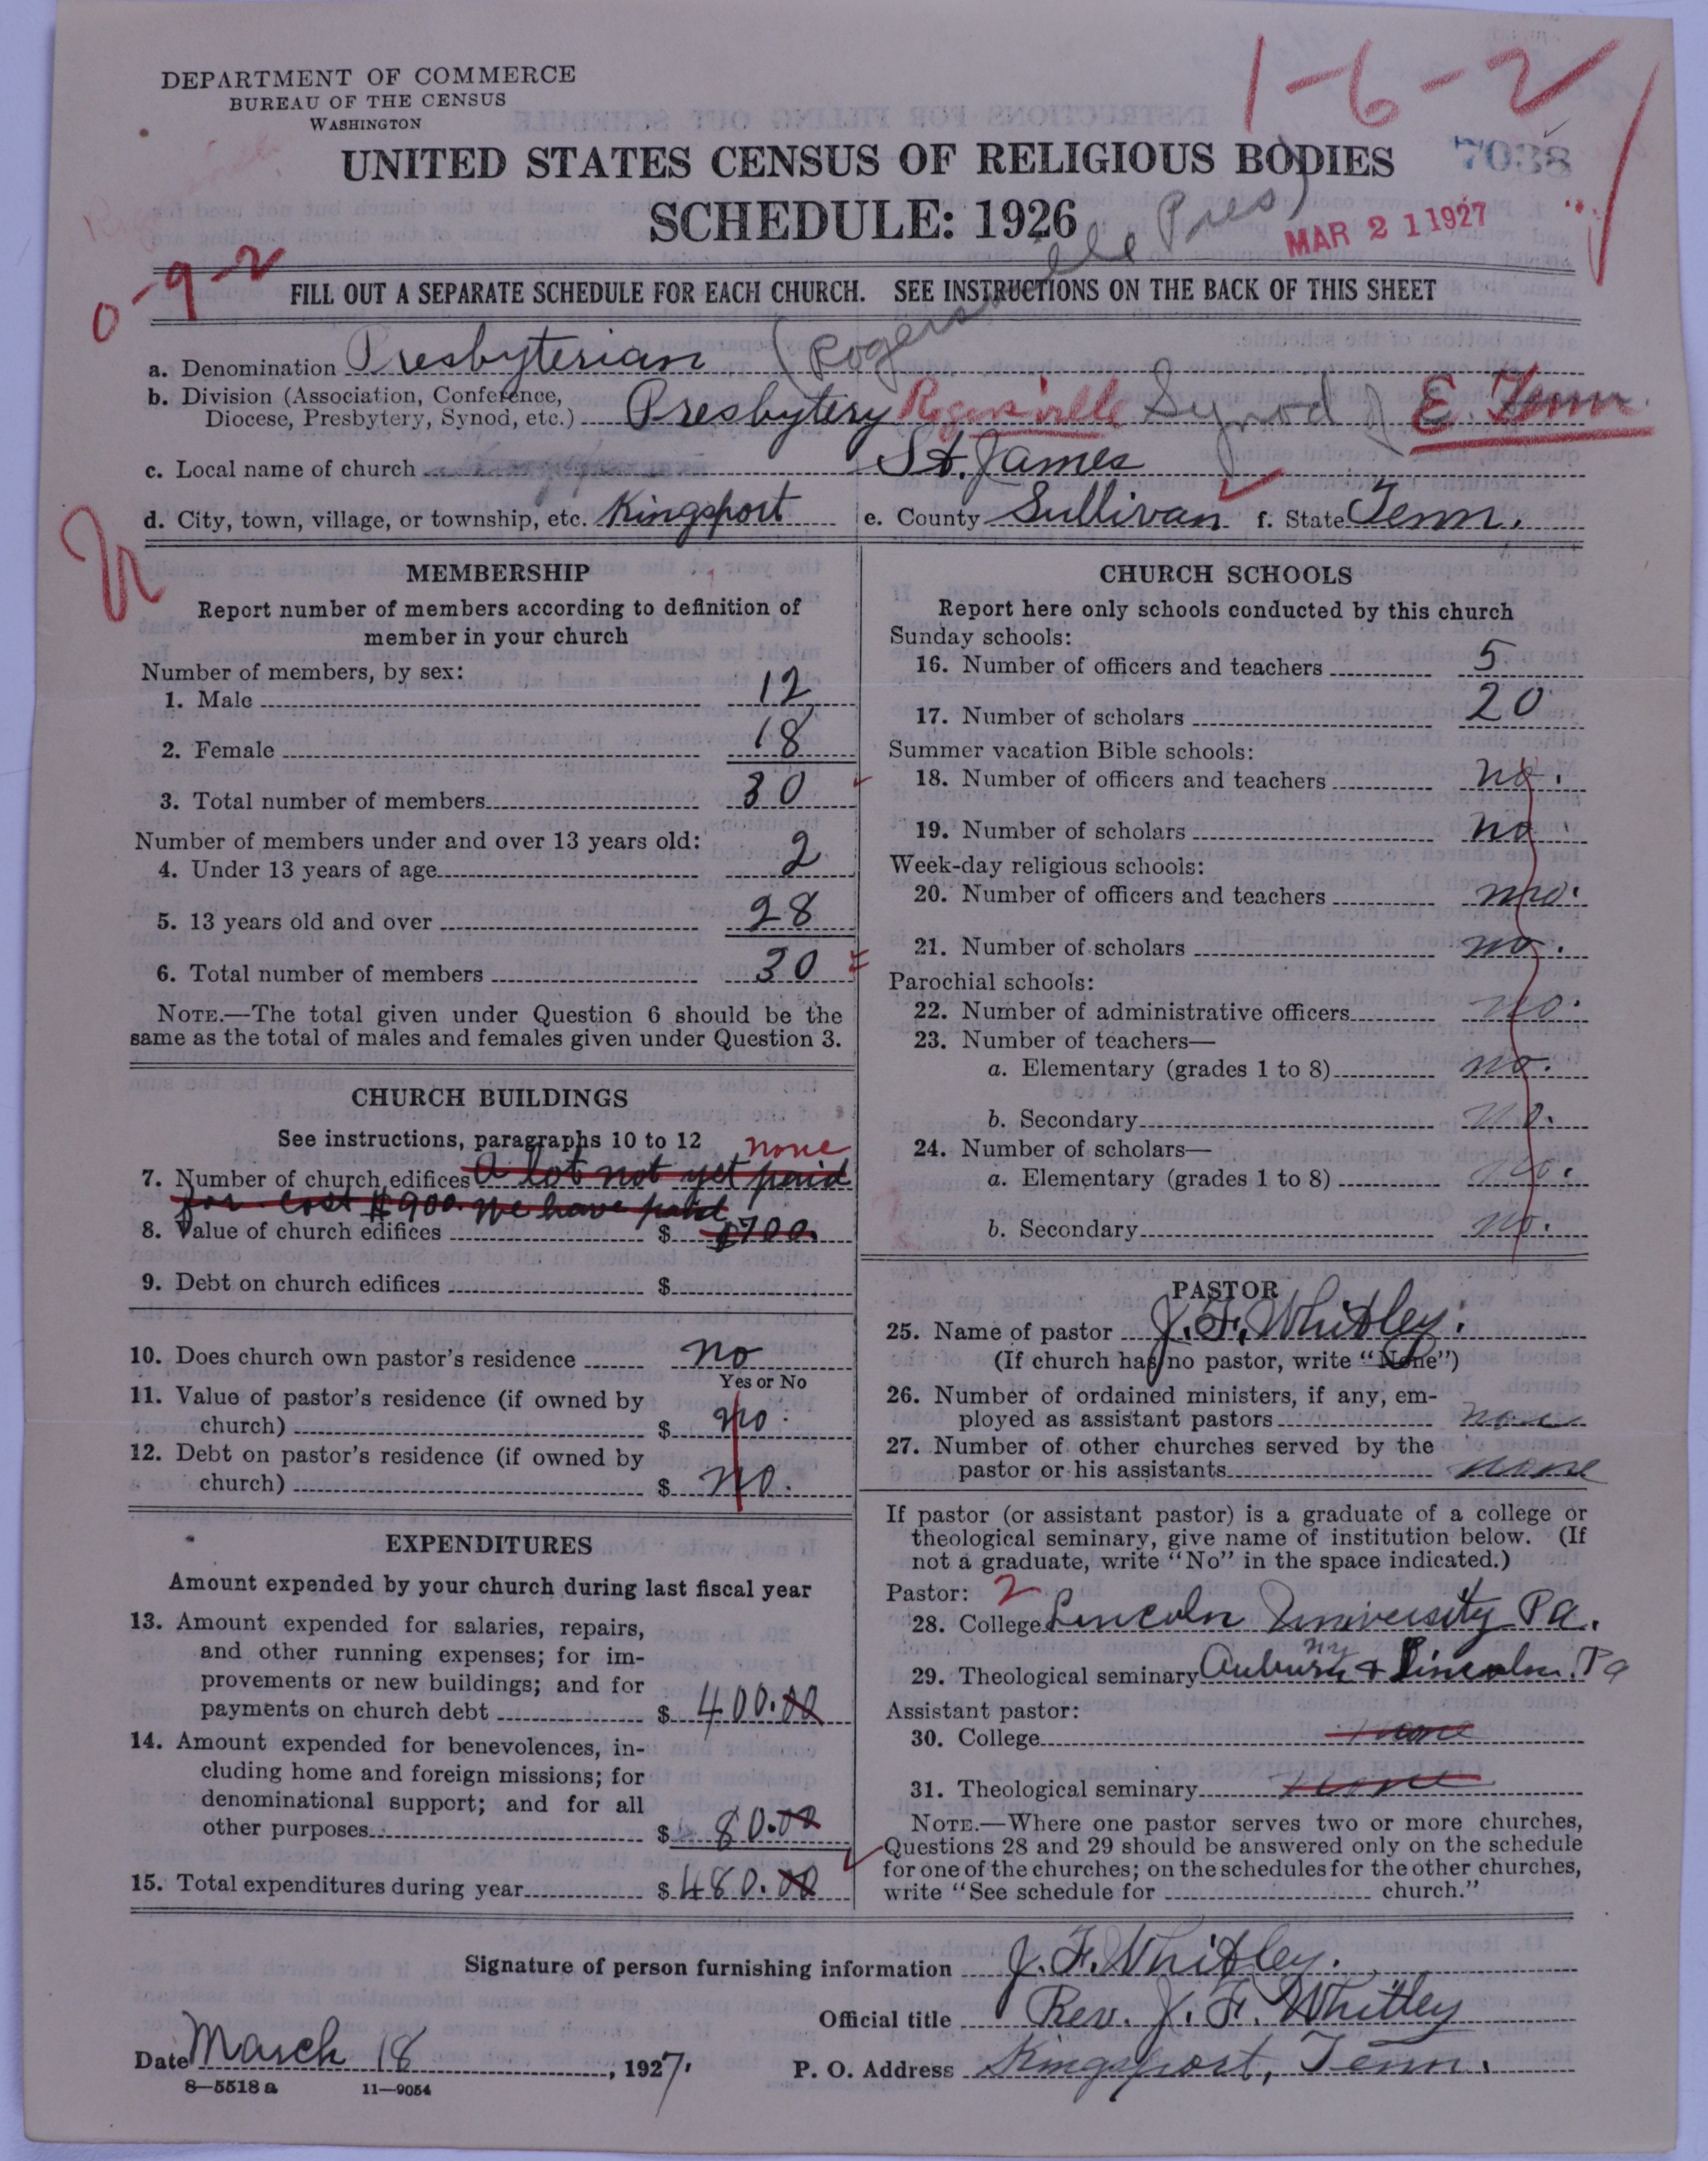 DEPARTMENT OF COMMERCE
BUREAU OF THE CENSUS
WASHINGTON
1-6-2
7038
UNITED STATES CENSUS OF RELIGIOUS BODIES
SCHEDULE: 1926
MAR 21 1927
0-9-2
FILL OUT A SEPARATE SCHEDULE FOR EACH CHURCH. SEE INSTRUCTIONS ON THE BACK OF THIS SHEET
a. Denomination Presbyterian (Rogersville Pres)
b. Division (Association, Conference,
Diocese, Presbytery, Synod, etc.) Presbytery Rogersville Synod of E. Tenn.
c. Local name of church St. James
d. City, town, village, or township, etc. Kingsport e. County Sullivan f. State Tenn.
MEMBERSHIP
Report number of members according to definition of
member in your church
Number of members, by sex:
1. Male 12
2. Female 18
3. Total number of members 30
Number of members under and over 13 years old:
4. Under 13 years of age 2
5. 13 years old and over 28
6. Total number of members 30
NOTE.—The total given under Question 6 should be the
same as the total of males and females given under Question 3.
CHURCH BUILDINGS
See instructions, paragraphs 10 to 12
none
7. Number of church edifices a lot not yet paid
for. cost $900. we have paid
8. Value of church edifices $ $700.
9. Debt on church edifices $
10. Does church own pastor's residence no
Yes or No
11. Value of pastor's residence (if owned by
church) $ no.
12. Debt on pastor's residence (if owned by
church) $ no.
EXPENDITURES
Amount expended by your church during last fiscal year
13. Amount expended for salaries, repairs,
and other running expenses; for im-
provements or new buildings; and for
payments on church debt $ 400.00
14. Amount expended for benevolences, in-
cluding home and foreign missions; for
denominational support; and for all
other purposes $ 80.00
15. Total expenditures during year $ 480.00
CHURCH SCHOOLS
Report here only schools conducted by this church
Sunday schools:
16. Number of officers and teachers 5
17. Number of scholars 20
Summer vacation Bible schools:
18. Number of officers and teachers no.
19. Number of scholars no.
Week-day religious schools:
20. Number of officers and teachers no.
21. Number of scholars no.
Parochial schools:
22. Number of administrative officers no.
23. Number of teachers—
a. Elementary (grades 1 to 8) no.
b. Secondary no.
24. Number of scholars—
a. Elementary (grades 1 to 8) no.
b. Secondary no.
PASTOR
25. Name of pastor J. F. Whitley.
(If church has no pastor, write "None")
26. Number of ordained ministers, if any, em-
ployed as assistant pastors none
27. Number of other churches served by the
pastor or his assistants none
If pastor (or assistant pastor) is a graduate of a college or
theological seminary, give name of institution below. (If
not a graduate, write "No" in the space indicated.)
Pastor: 2
28. College Lincoln University Pa.
29. Theological seminary Auburn ny & Lincoln. Pa
Assistant pastor:
30. College none
31. Theological seminary none
NOTE.—Where one pastor serves two or more churches,
Questions 28 and 29 should be answered only on the schedule
for one of the churches; on the schedules for the other churches,
write "See schedule for church."
Signature of person furnishing information J. F. Whitley.
Official title Rev. J. F. Whitley
Date March 18, 1927. P. O. Address Kingsport, Tenn.
8—5518 a 11—9054